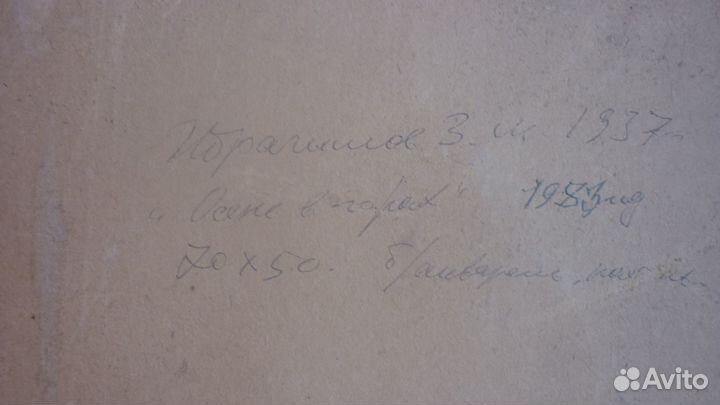 Ибрагимов З. ш. 1937г
"Осень в горах" 1983год
70х50. б/акварель,
Avito